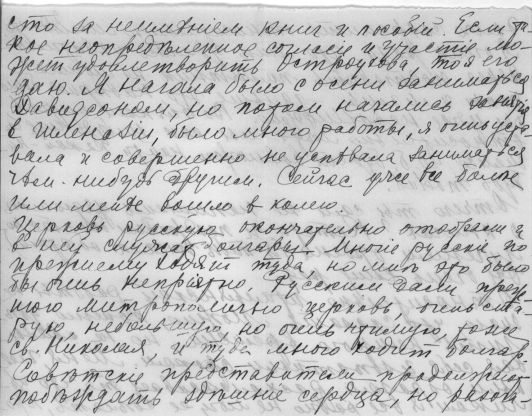 сто за неимѣніем книг и пособій. Если та-
кое неопредѣленное согласіе и участіе мо-
жет удовлетворить Остроухова, то я его
даю. Я начала было с осени заниматься
Давидсоном, но потом начались занятія
в гимназіи, было много работы, я очень уста-
вала и совершенно не успѣвала заниматься
чѣм-нибудь другим. Сейчас уже все болѣе
или менѣе вошло в колею.
Церковь русскую окончательно отобрали и
в ней служат болгары. Многіе русскіе по
прежнему ходят туда, но мнѣ это было
бы очень непріятно. Русским дали преж-
нюю митрополичью церковь, очень ста-
рую, небольшую, но очень чтимую, тоже
св. Николая, и туда много ходит болгар.
Совѣтскіе представители продолжают
побѣждать здѣшніе сердца, но разоча-